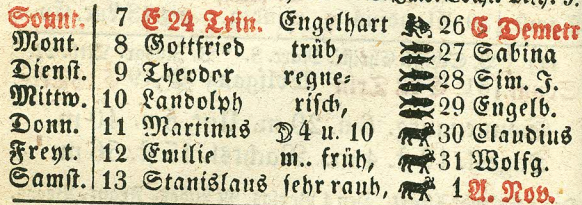 Sonnt. 7 E 24 Trin. Engelhart 26 C Demetr
Mont. 8 Gottfried trüb, 27 Sabina
Dienst. 9 Theodor regne= 28 Sim. J.
Mittw. 10 Landolph risch, 29 Engelb.
Donn. 11 Martinus ☽4 u. 10 30 Claudius
Freyt. 12 Emilie m.. früh, 31 Wolfg.
Samst. 13 Stanislaus sehr rauh, 1 A. Nov.